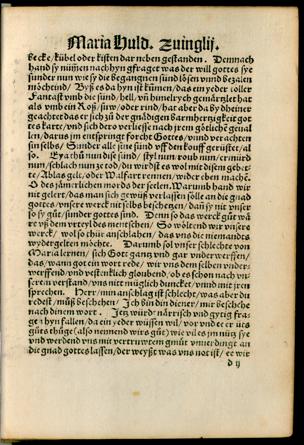 Maria Huld. Zuinglij.
becke/ kübel oder kisten dar neben gestanden. Demnach
hand sy niemen nachhyn gfraget was der will gottes sye
sunder nun wie sy die begangnen sünd lösen vnnd bezalen
möchtend/ Byß es da hyn ist kumen/ das ein yeder toller
Fantast vmb die sünd/ hell/ vñ himelrych gemärgtet hat
als vmb ein Roß/ suw/ oder rind/ hat aber da by dheiner
geachtet das er sich vß der gnädigen barmhertzigkeit got
tes karte/ vnd sich dero verließe nach jrem götliche gfal
len/ darus jm entspringt forcht Gottes/ vnnd verachten
sin selbs/ Sunder alle sine sünd vff den kouff gerüstet/ al
so. Ey ach nüm di ß sünd/ spil nun roub nun/ ermürd
nun/ schlach nun ze tod/ du wirdst es wol mit disem gebet
te/ Ablas gelt/ oder Walfart rennen/ wider eben machē.
O des jämerlichen mords der seelen. Warumb hand wir
nit gelert/ das man sich gewüß verlassen sölle an die gnad
gottes/ vnsere werck nit selbs beschetzen/ dañ sy nit vnser
so sy güt/ sunder gottes sind. Denn so das werck güt wä
re vß dem vrteyl des menschen/ So wöltend wir vnsere
werck/ wol so thür anschlahen/ das vns die niemandts
wydergelten möchte. Darumb sol vnser schlechte von
Maria lernen/ sich Gott gantz vnd gar vnderwerffen/
das/ wann got ein wort rede/ wir vns dem selben vnder
werffend/ vnd vestenklich gloubend/ ob es schon nach vn
serem verstand/ vns nitt müglich duncket/ vnnd mit jren
sprechen. Herr/ min anschlag ist schlecht/ was aber du
redest/ müß beschehen/ Ich bin din diener/ mir beschehe
nach dinem wort. Jetz würd närrisch vnd gytig fra
ge hyn fallen/ da ein yeder wüssen wil/ vor vnd ee er üts
güts thüge (also nemend wirs güt) wie vil es jm nütz sye
vnd werdend vns mit vertruwtem gmüt vnuerdingt an
die gnad gottes lassen/ der weyßt was vns not ist/ ee wir
d ij